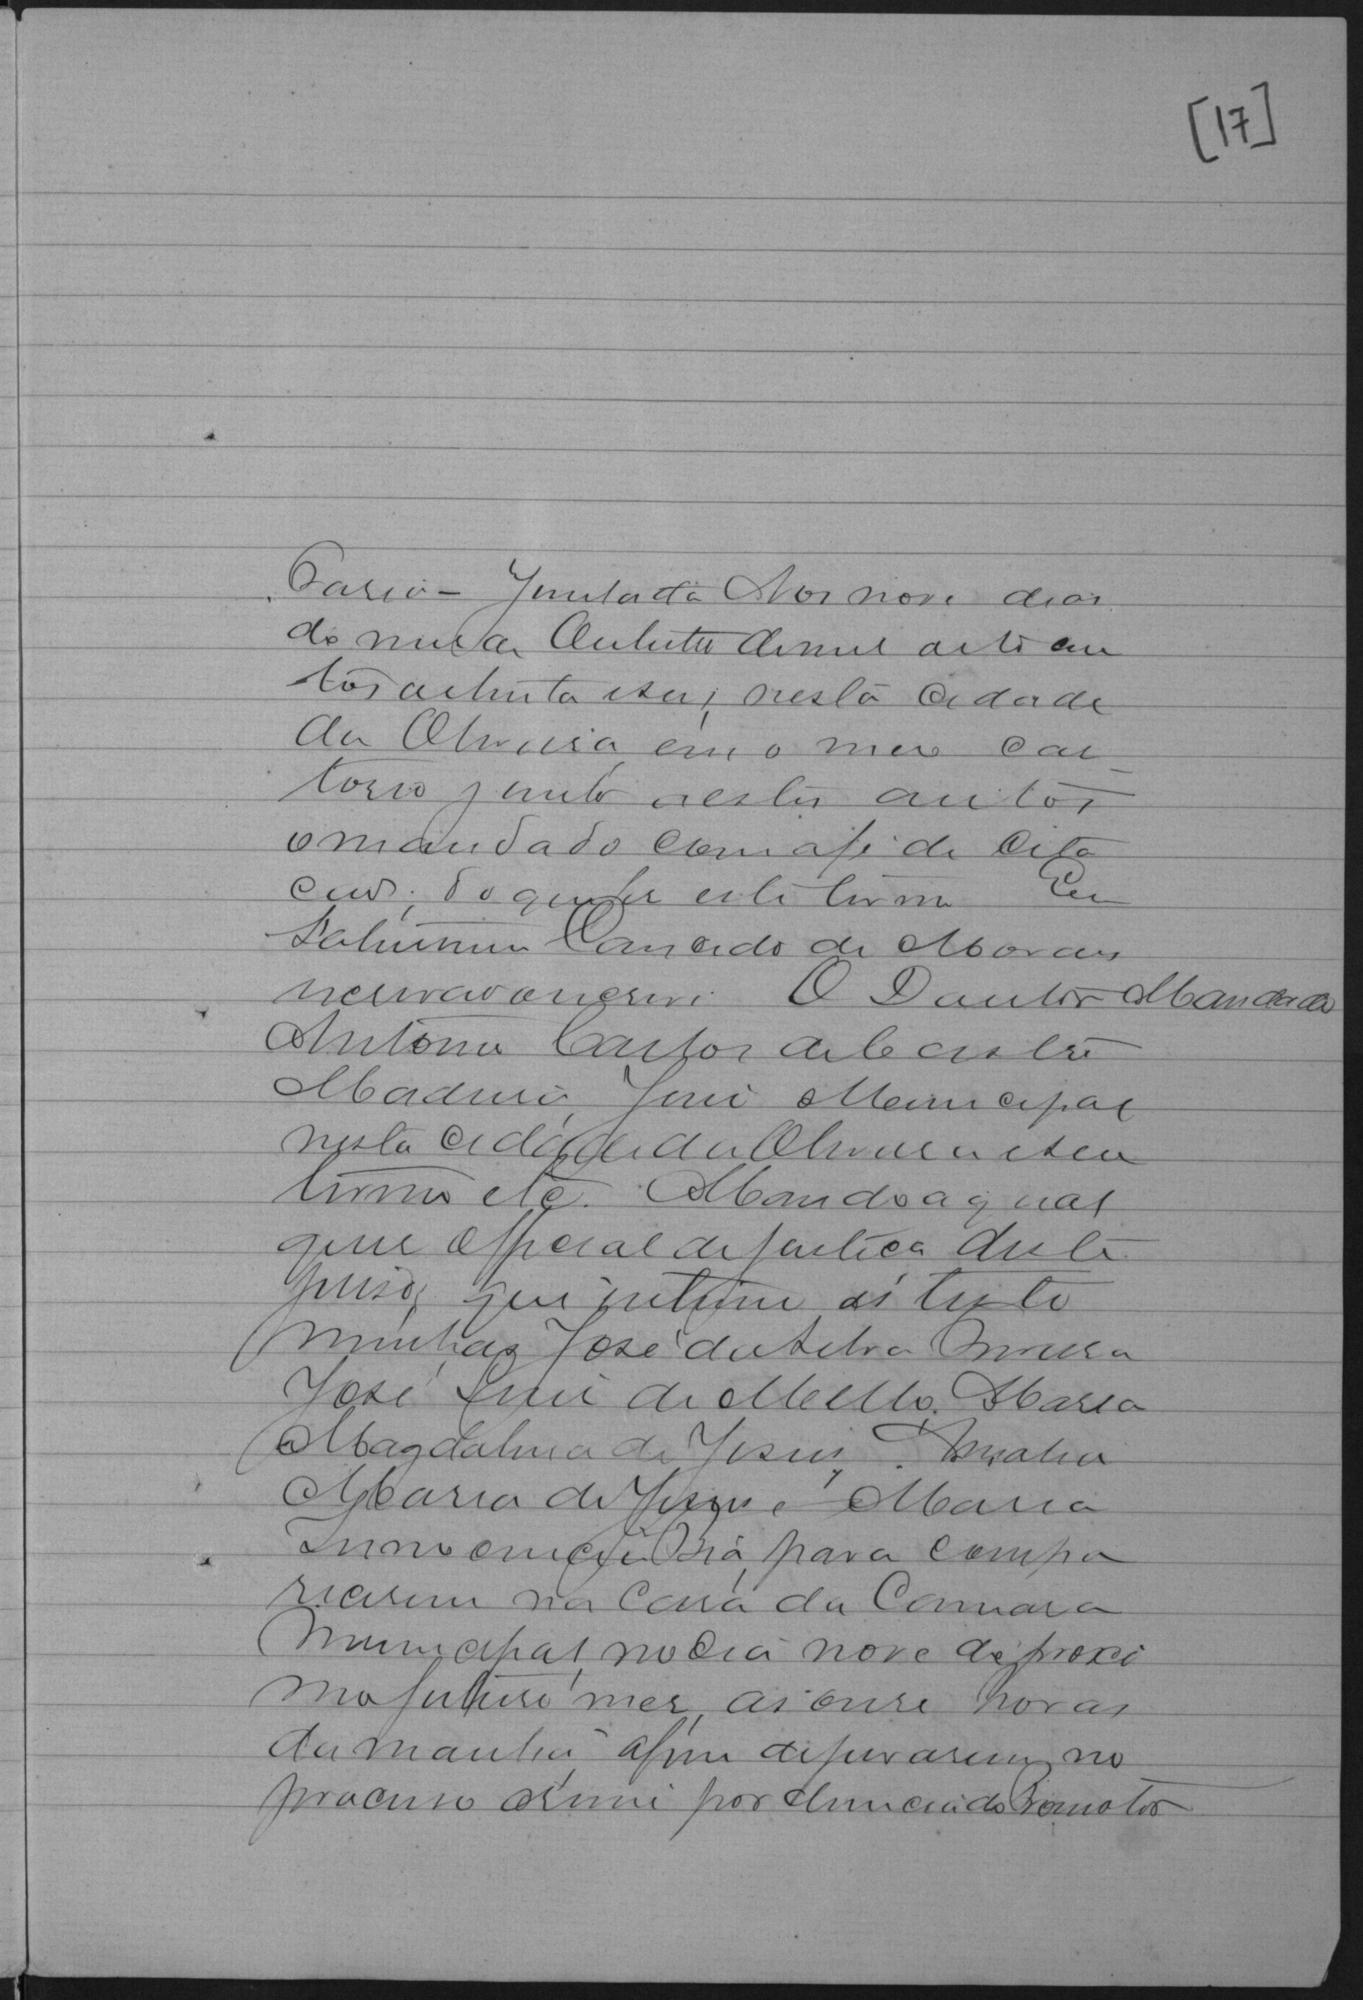 [17]
Juntada Aos nove dias
do mes de Outubro de mil oito cen
tos e oitenta e seis, nesta cidade
da Oliveira, em o meu car
torio junto a estes autos
o mandado com a fé de cita
ção; do que fiz este termo Eu
Cançado de Moraes
escrivão o escrevi. O Doutor Mandado
Antonio Carlos de Castro
Madureira, Juiz Municipal
nesta cidade da Oliveira e seu
termo etc. Mando a qual
quer official de justiça deste
juiso, que intime as teste
munhas José da Silva
José Luiz de Mello, Maria
Magdalena de Jesus,
Maria de Jesus e Maria
para compa
recerem na Casa da Camara
Municipal, no dia nove do proxi
mo futuro mes, as onze horas
da manhã, afim de jurarem no
processo crime por denuncia do Promotor